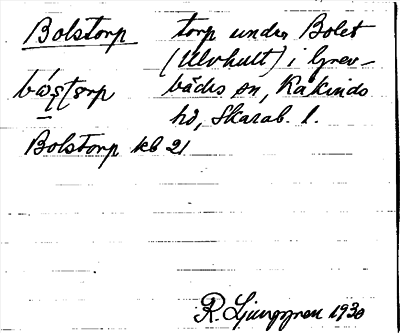 Bolstorp torp under Bolet
(Ulvhult) i Grev-
bäcks sn, Kåkinds
hd, Skarab. l.
Bolstorp kb 21
R. Ljunggren 1930